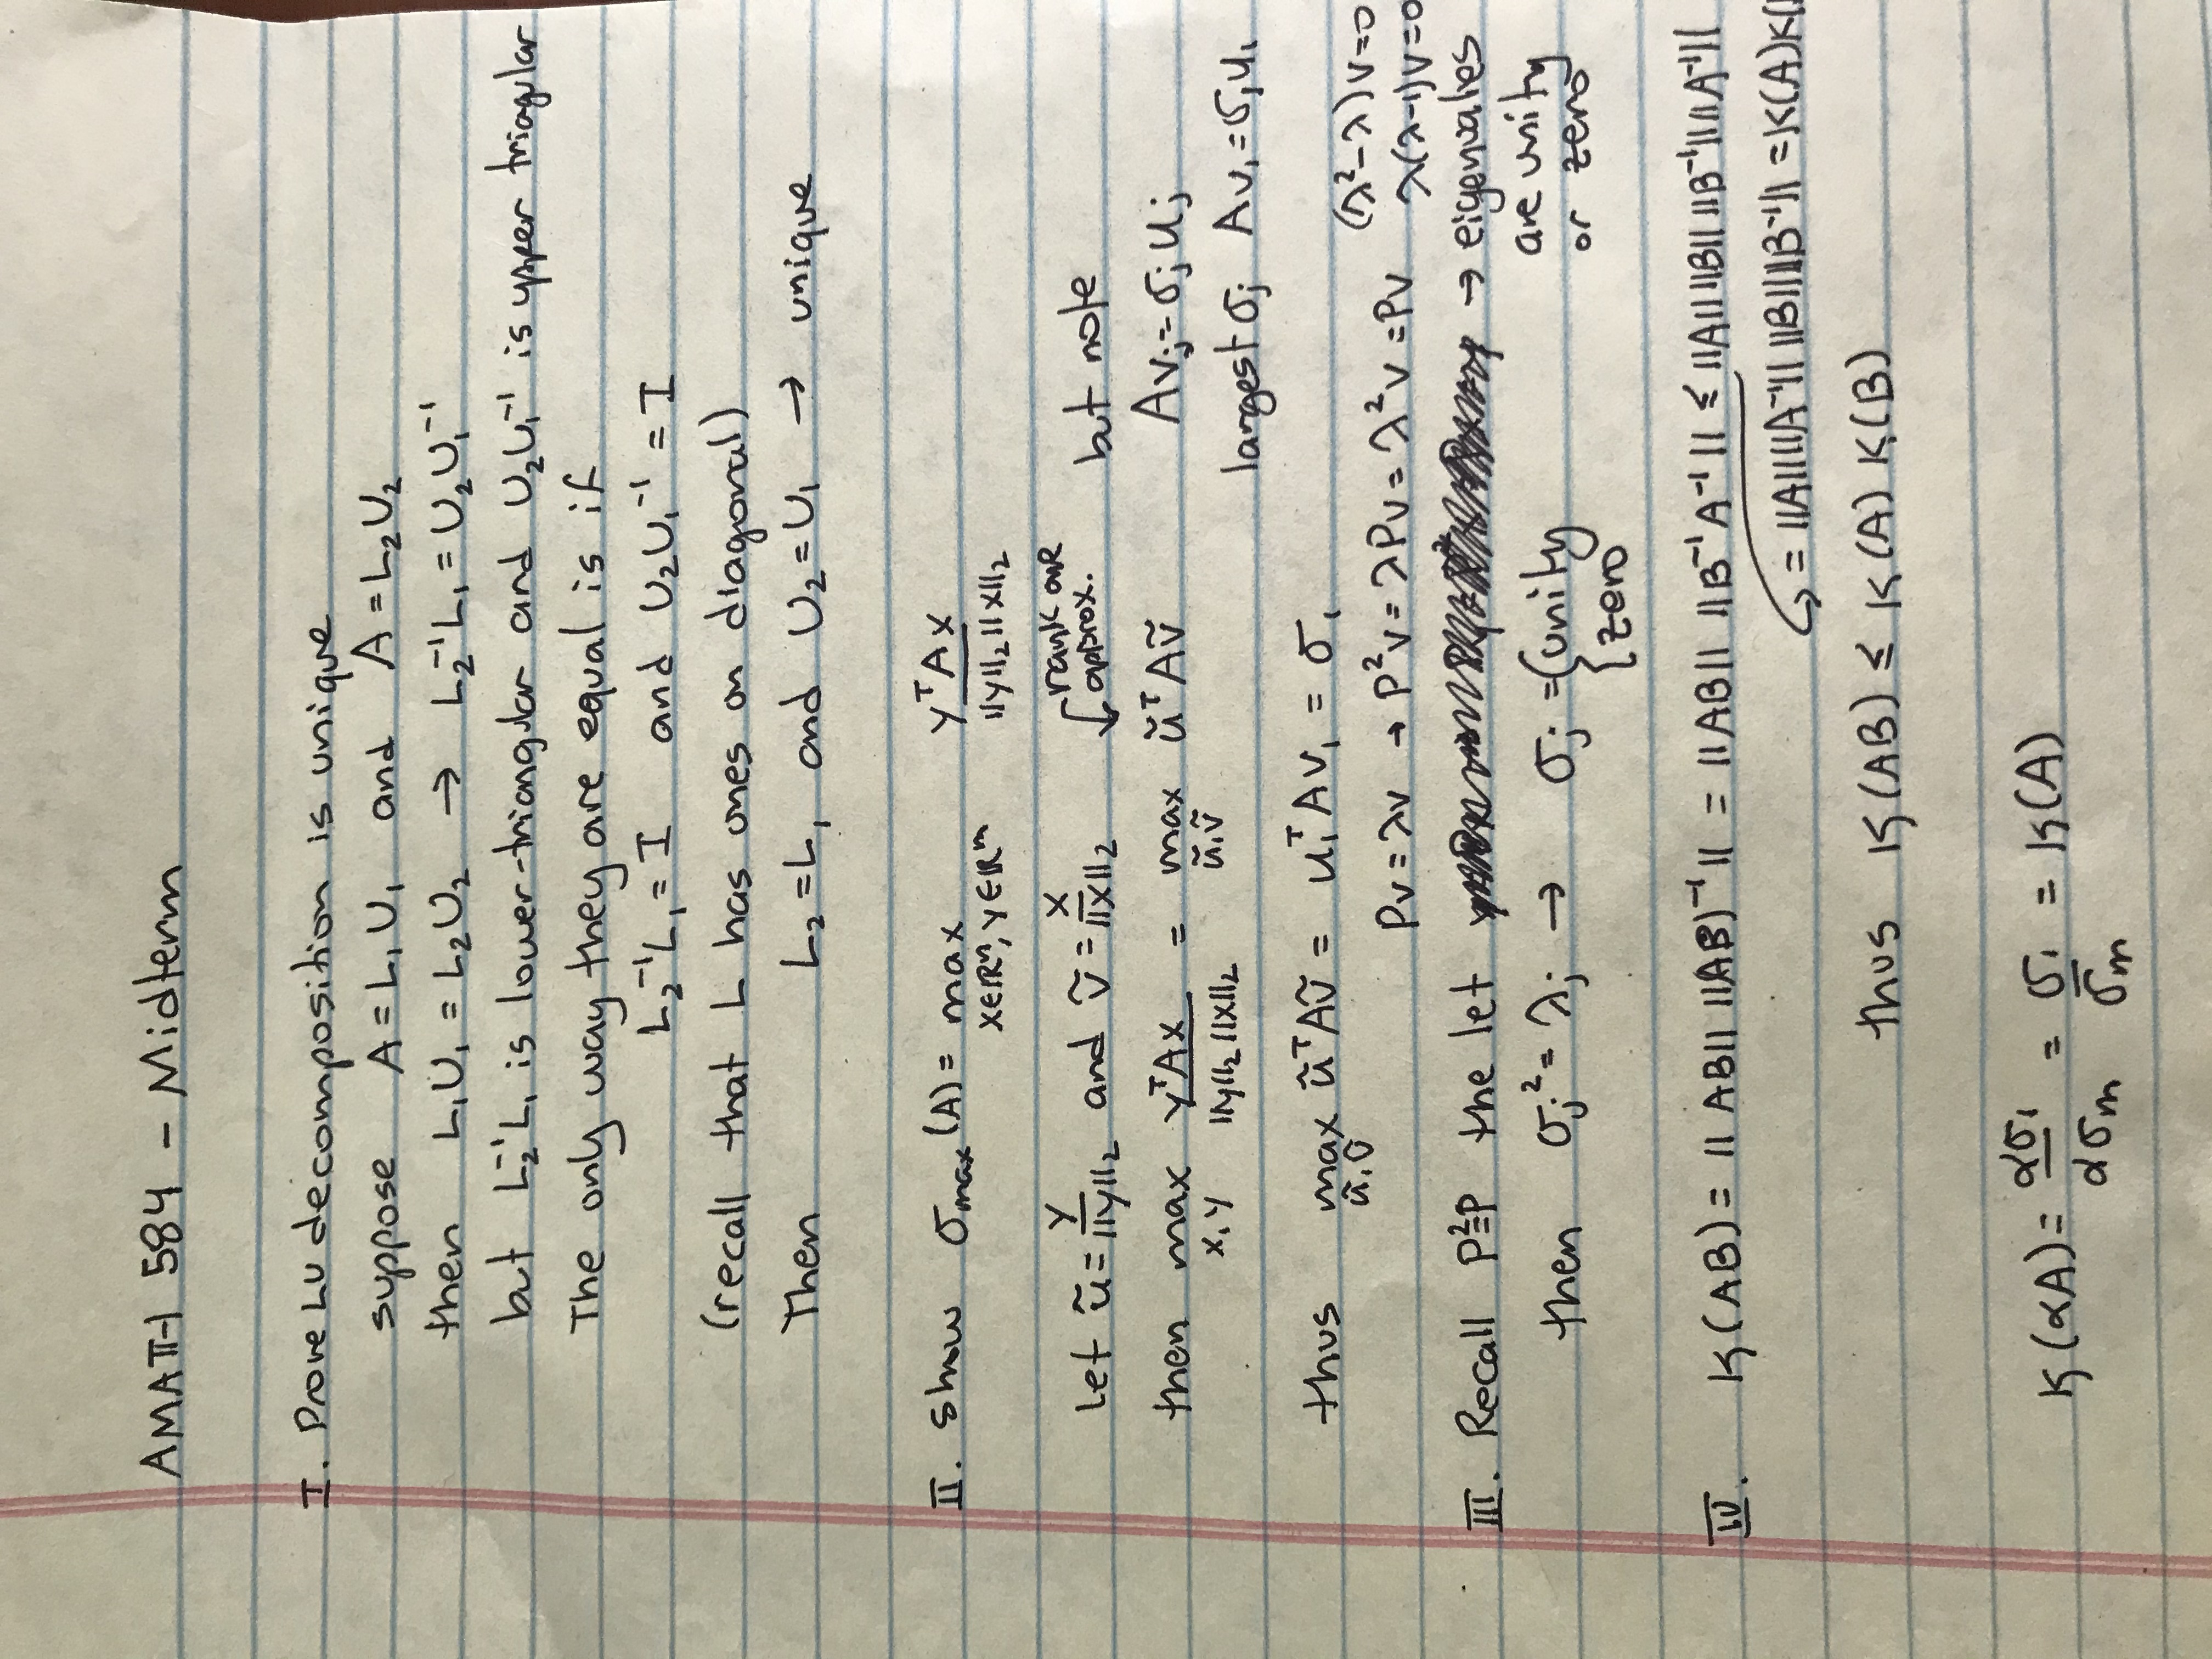 AMATH 584 - Midterm
I. Prove LU decomposition is unique
suppose A = L₁U₁ and A = L₂U₂
then L₁U₁ = L₂U₂ → L₂⁻¹L₁ = U₂U₁⁻¹
but L₂⁻¹L₁ is lower-triangular and U₂U₁⁻¹ is upper triagular
The only way they are equal is if
L₂⁻¹L₁ = I and U₂U₁⁻¹ = I
(recall that L has ones on diagonal)
Then L₂ = L₁ and U₂ = U₁ → unique
II. Show σmax(A) = max x∈ℝⁿ, y∈ℝᵐ yᵀAx / ||y||₂ ||x||₂
let ũ = y/||y||₂ and ṽ = x/||x||₂ ↓ rank one approx. but note
then max x,y yᵀAx / ||y||₂ ||x||₂ = max ũ,ṽ ũᵀAṽ Avⱼ = σⱼuⱼ
largest σⱼ Av₁ = σ₁u₁
thus max ũ,ṽ ũᵀAṽ = u₁ᵀAv₁ = σ₁
Pv = λv → P²v = λPv = λ²v = Pv (λ²-λ)v=0
λ(λ-1)v=0
III. Recall P²=P the let → eigenvalues
are unity
or zero
then σⱼ² = λⱼ → σⱼ = { unity
{ zero
IV. κ(AB) = ||AB|| ||(AB)⁻¹|| = ||AB|| ||B⁻¹A⁻¹|| ≤ ||A|| ||B|| ||B⁻¹|| ||A⁻¹||
= ||A|| ||A⁻¹|| ||B|| ||B⁻¹|| = κ(A)κ(
thus κ(AB) ≤ κ(A) κ(B)
κ(αA) = ασ₁/ασm = σ₁/σm = κ(A)